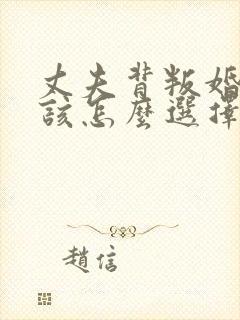 丈夫背叛婚
該怎麼選擇
趙信